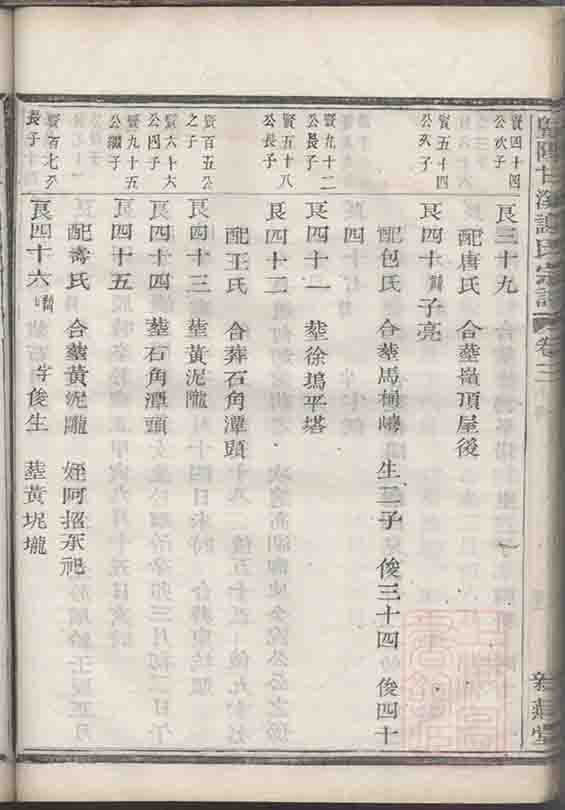 甘溪謝氏宗譜
卷三
賢四十四
公次子
良三十九
配唐氏 合塟嶺頂屋後
賢五十四
公次子
良四十 諱子亮
配包氏 合塟馬桐 生二子 俊三十四 俊四十
四
賢九十二
公長子
良四十一 塟徐塢平塔
賢五十八
公長子
良四十二
配王氏 合葬石角潭頭
賢百五公
之子
良四十三 塟黃泥隴
賢六十六
公四子
良四十四 塟石角潭頭
賢九十五
公繼子
良四十五
配壽氏 合塟黃泥隴 姪阿招承祀
賢百七公
長子
良四十六 諱 字俊生 塟黃坭壠